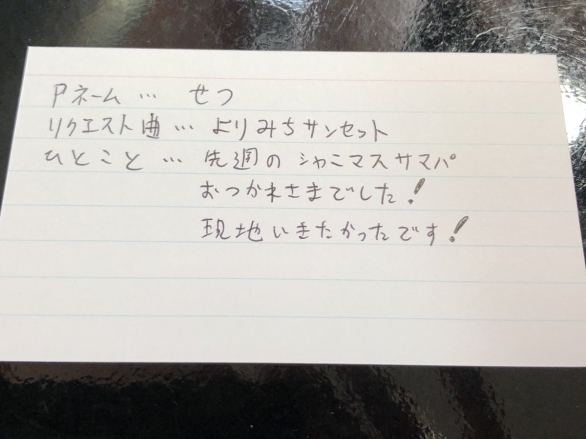 Pネーム … せつ
リクエスト曲 … よりみちサンセット
ひとこと … 先週のシャニマスサマパ
おつかれさまでした!
現地いきたかったです!